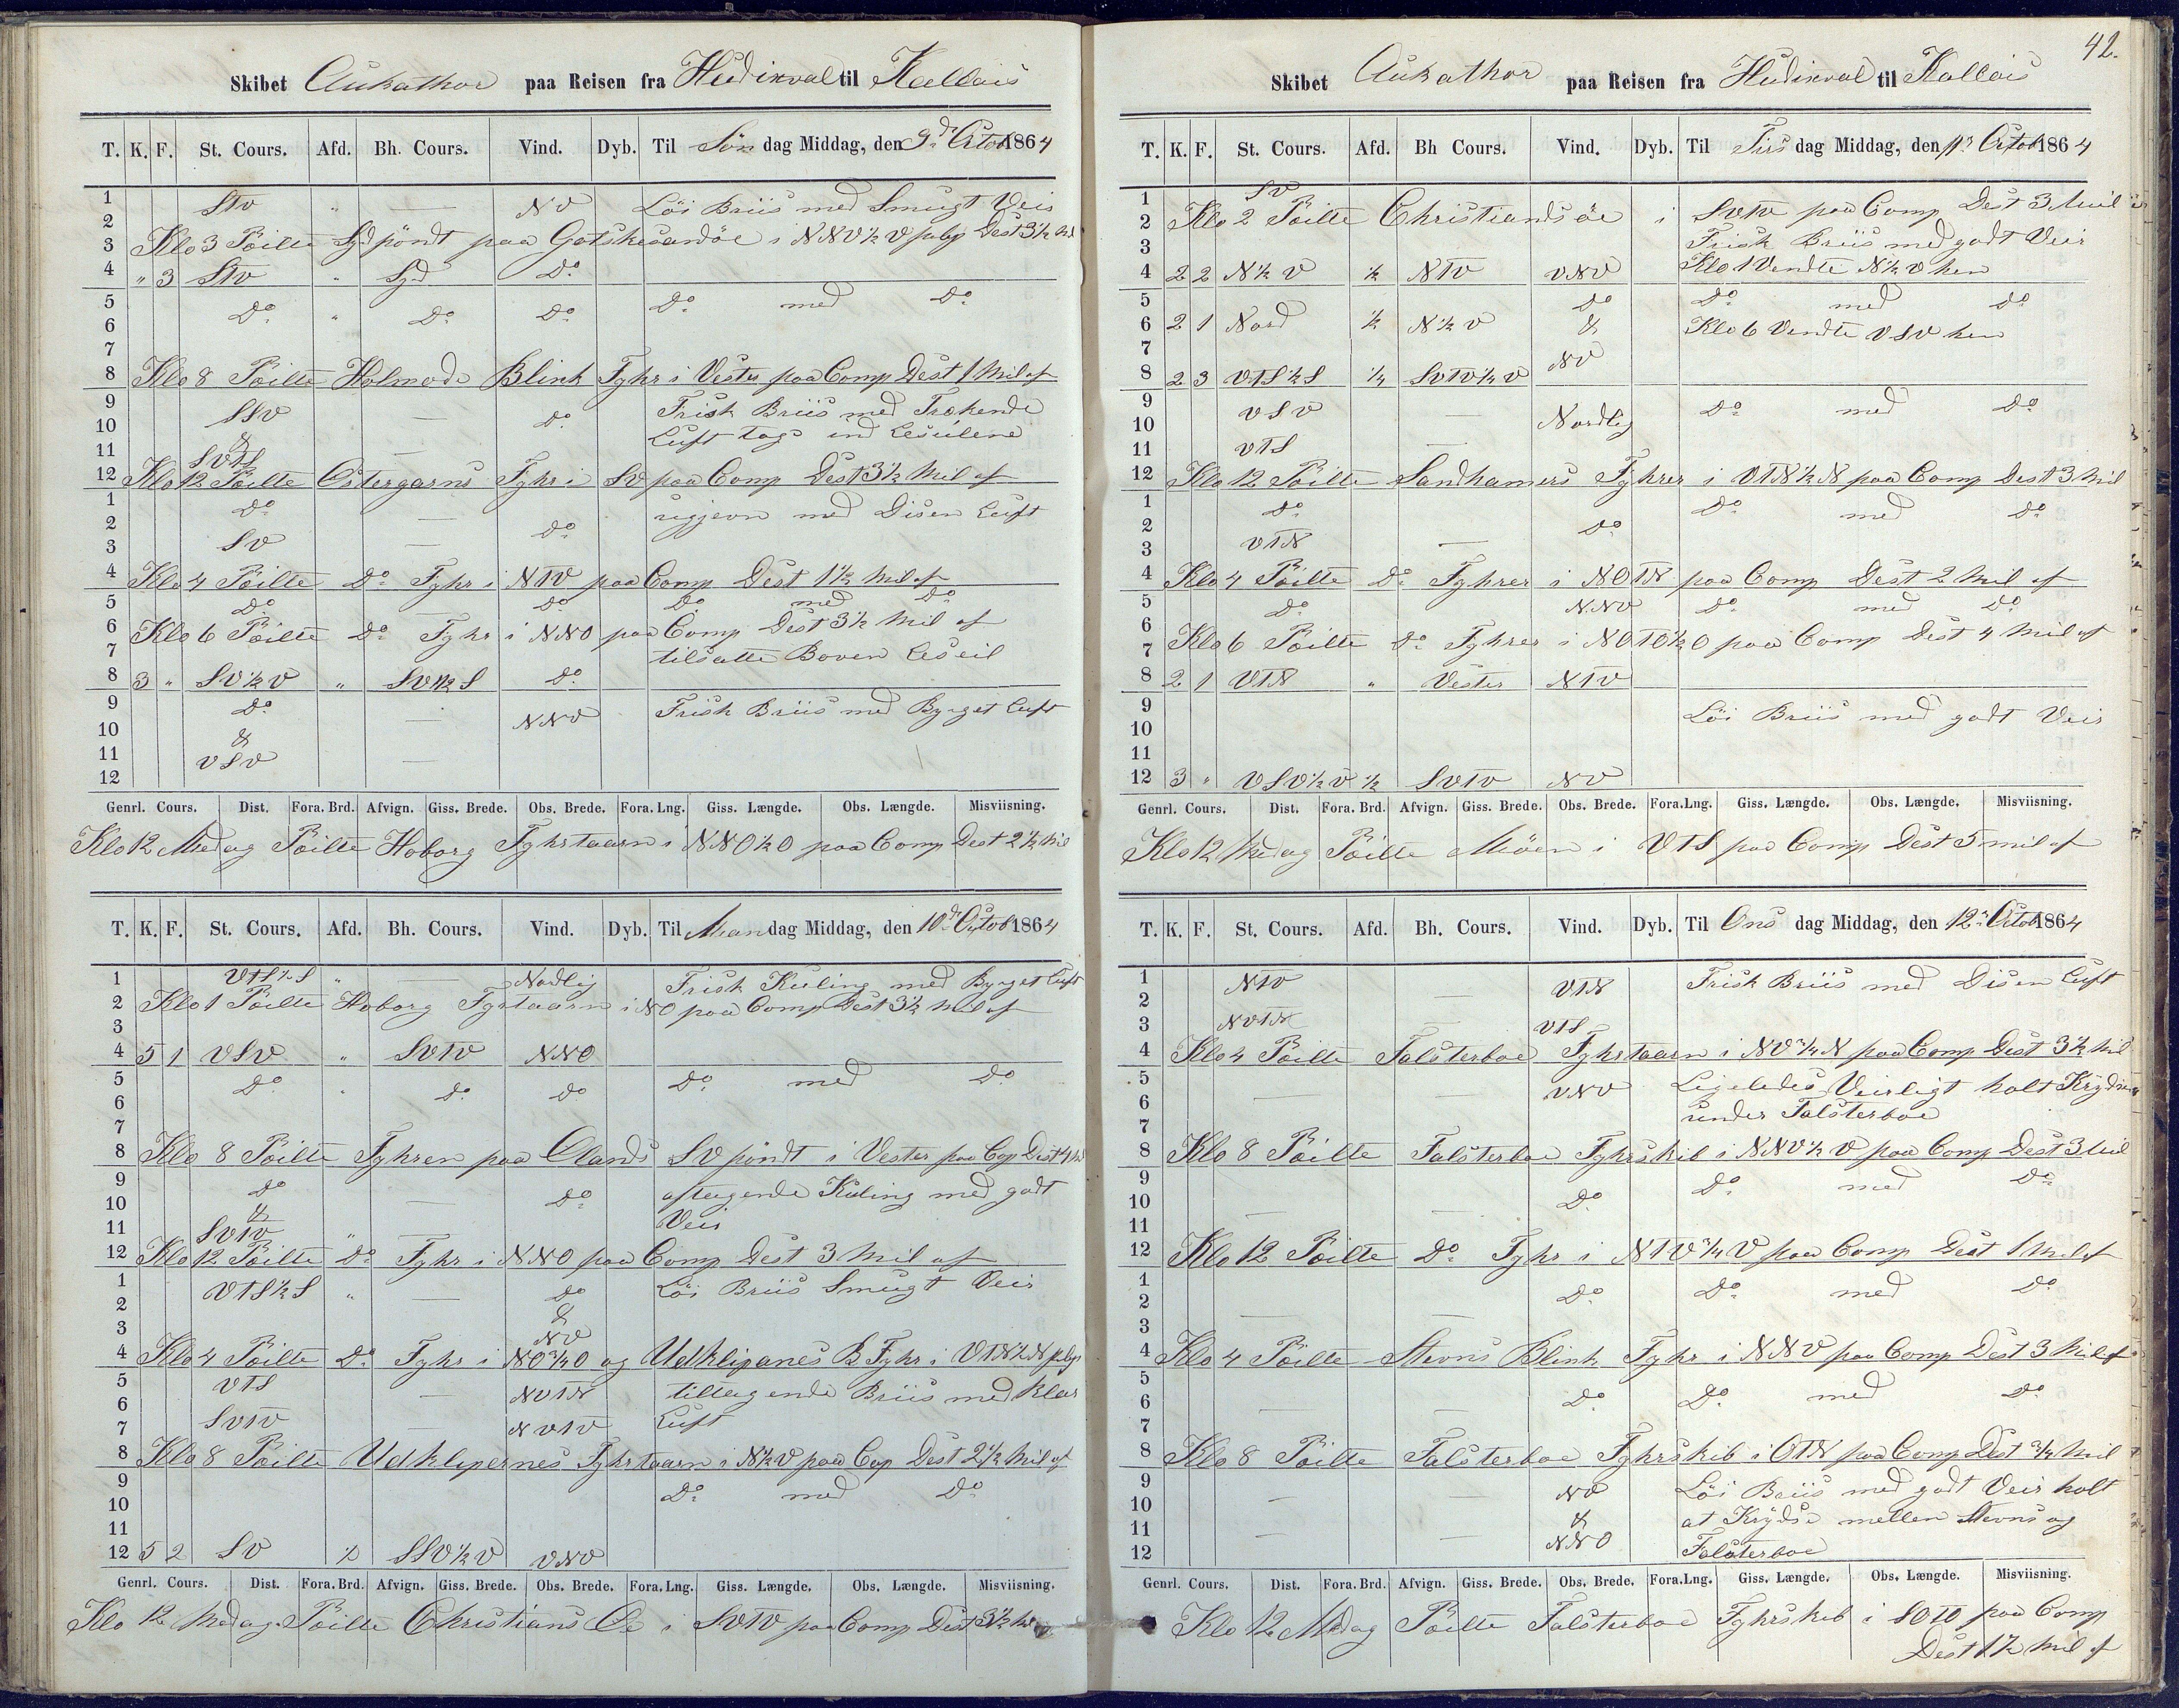 Skibet Aukathor paa Reisen fra Hudinval til Kallais
T. K. F. St. Cours. Afd. Bh. Cours. Vind. Dyb. Til Søn dag Middag, den 9de Octob 1864
1 StV " — NV Löi Briis med Smugt Veir
2
3 Klo 3 Peilte Syd pöndt paa Gotskesandöe i NNV½V Dest 3½ Mil
4 " 3 StV " Syd Do
5 Do " Do Do Do med Do
6
7
8 Klo 8 Peilte Holmode Blink Fyhr i Vester paa Comp Dest 1 Mil af
9 SSV — Do Frisk Briis med Trækende
10 & Luft tags ind Leseilene
11 SVtS —
12 Klo 12 Peilte Östergarns Fyhr i SV paa Comp Dest 3½ Mil af
1 Do — med Disen Luft
2 Do
3 SV —
4 Klo 4 Peilte Do Fyhr i NtV paa Comp Dest 1½ Mil af
5 Do Do Do med Do
6 Klo 6 Peilte Do Fyhr i NNO paa Comp Dest 3½ Mil af
7 tilsatte Boven Leseil
8 3 " SV½V " SV½S Do
9 Do — NNV Frisk Briis med Byget Luft
10 &
11 VSV —
12
Genrl. Cours. Dist. Fora. Brd. Afvign. Giss. Brede. Obs. Brede. Fora. Lng. Giss. Længde. Obs. Længde. Misviisning.
Klo 12 Medag Peilte Hoborg Fyhrtaarn i NNO½O paa Comp Dest 2½ Mil
T. K. F. St. Cours. Afd. Bh. Cours. Vind. Dyb. Til Man dag Middag, den 10de Octob 1864
1 VtS½S " — Nodlig Frisk Kuling med Byget Luft
2 Klo 1 Peilte Hoborg Fyrtaarn i NO paa Comp Dest 3½ Mil af
3
4 5 1 VSV " SVtV NNO
5 Do " Do Do Do med Do
6
7
8 Klo 8 Peilte Fyhren paa Olands SV pöndt i Vester paa Cop Dist 4 M
9 Do — Do aftagende Kuling med godt
10 & Veir
11 SVtV "
12 Klo 12 Peilte Do Fyhr i NNO paa Comp Dest 3 Mil af
1 VtS½S " — Do Löi Briis Smugt Veir
2 &
3 NV
4 Klo 4 Peilte Do Fyhr i NO¾O og Udklipanes B Fyhr i VtN½N
5 VtS — NVtN tiltagende Briis med Klar
6 Luft
7 SVtV — NVtV
8 Klo 8 Peilte Udklipernes Fyhrtaarn i N½V paa Cop Dest 2½ Mil af
9 Do med Do
10
11
12 5 2 SV ½ SSV½V VNV
Genrl. Cours. Dist. Fora. Brd. Afvign. Giss. Brede. Obs. Brede. Fora. Lng. Giss. Længde. Obs. Længde. Misviisning.
Klo 12 Medag Peilte Christians Oe i SVtV paa Comp Dist 3½ M
42.
Skibet Aukathor paa Reisen fra Hudinval til Kallais
T. K. F. St. Cours. Afd. Bh Cours. Vind. Dyb. Til Tirs dag Middag, den 11 Octob 1864
1 SV
2 Klo 2 Peilte Christiandsöe i SVtV paa Comp Dest 3 Mil
3 Frisk Briis med godt Veir
4 2 2 N½V ½ NtV VNV Klo 1 Vendte N½V hen
5 Do Do med Do
6 2 1 Nord ½ N½V & Klo 6 Vendte VSV hen
7 NV
8 2 3 VtS½S ¼ SVtV¼V
9 VSV — Do med Do
10 Nordlig
11 VtS —
12 Klo 12 Peilte Sandhamers Fyhrer i VtN½N paa Comp Dest 3 Mil
1 Do Do med Do
2 Do
3 VtN —
4 Klo 4 Peilte Do Fyhrer i NOtN paa Comp Dest 2 Mil af
5 Do NNV Do med Do
6
7 Klo 6 Peilte Do Fyhrer i NOtO½O paa Comp Dest 4 Mil af
8 2 1 VtN " Vester NtV
9 Löi Briis med godt Veir
10
11
12 3 " VSV½V ½ SVtV NV
Genrl. Cours. Dist. Fora. Brd. Afvign. Giss. Brede. Obs. Brede. Fora. Lng. Giss. Længde. Obs. Længde. Misviisning.
Klo 12 Medag Peilte Möen i VtS paa Comp Dest 5 mil af
T. K. F. St. Cours. Afd. Bh. Cours. Vind. Dyb. Til Ons dag Middag, den 12 Octob 1864
1 NtV — VtN Frisk Briis med Disen Luft
2
3 NVtN — VtS
4 Klo 4 Peilte Falsterboe Fyhrtaarn i NV¾N paa Comp Dest 3½ Mil
5 — — VNV Ligeledes Veirligt holt Krydse
6 under Falsterboe
7
8 Klo 8 Peilte Falsterboe Fyhrskib i NNV½V paa Comp Dest 3 Mil
9 Do med Do
10 — — Do
11
12 Klo 12 Peilte Do Fyhr i NtV¾V paa Comp Dest 1 Mil af
1 Do Do med Do
2 — —
3
4 Klo 4 Peilte Stevns Blink Fyhr i NNV paa Comp Dest 3 Mil af
5
6 — — Do Do med Do
7
8 Klo 8 Peilte Falsterboe Fyhrskib i OtN paa Comp Dest ¾ Mil
9 — — NV Löi Briis med godt Veir holt
10 & at Krydse mellen Stevns og
11 — — NNO
12 Falsterboe
Genrl. Cours. Dist. Fora. Brd. Afvign. Giss. Brede. Obs. Brede. Fora. Lng. Giss. Længde. Obs. Længde. Misviisning.
Klo 12 Medag Peilte Falsterboe Fyhrskib i SOtO paa Comp
Dest 1½ Mil af